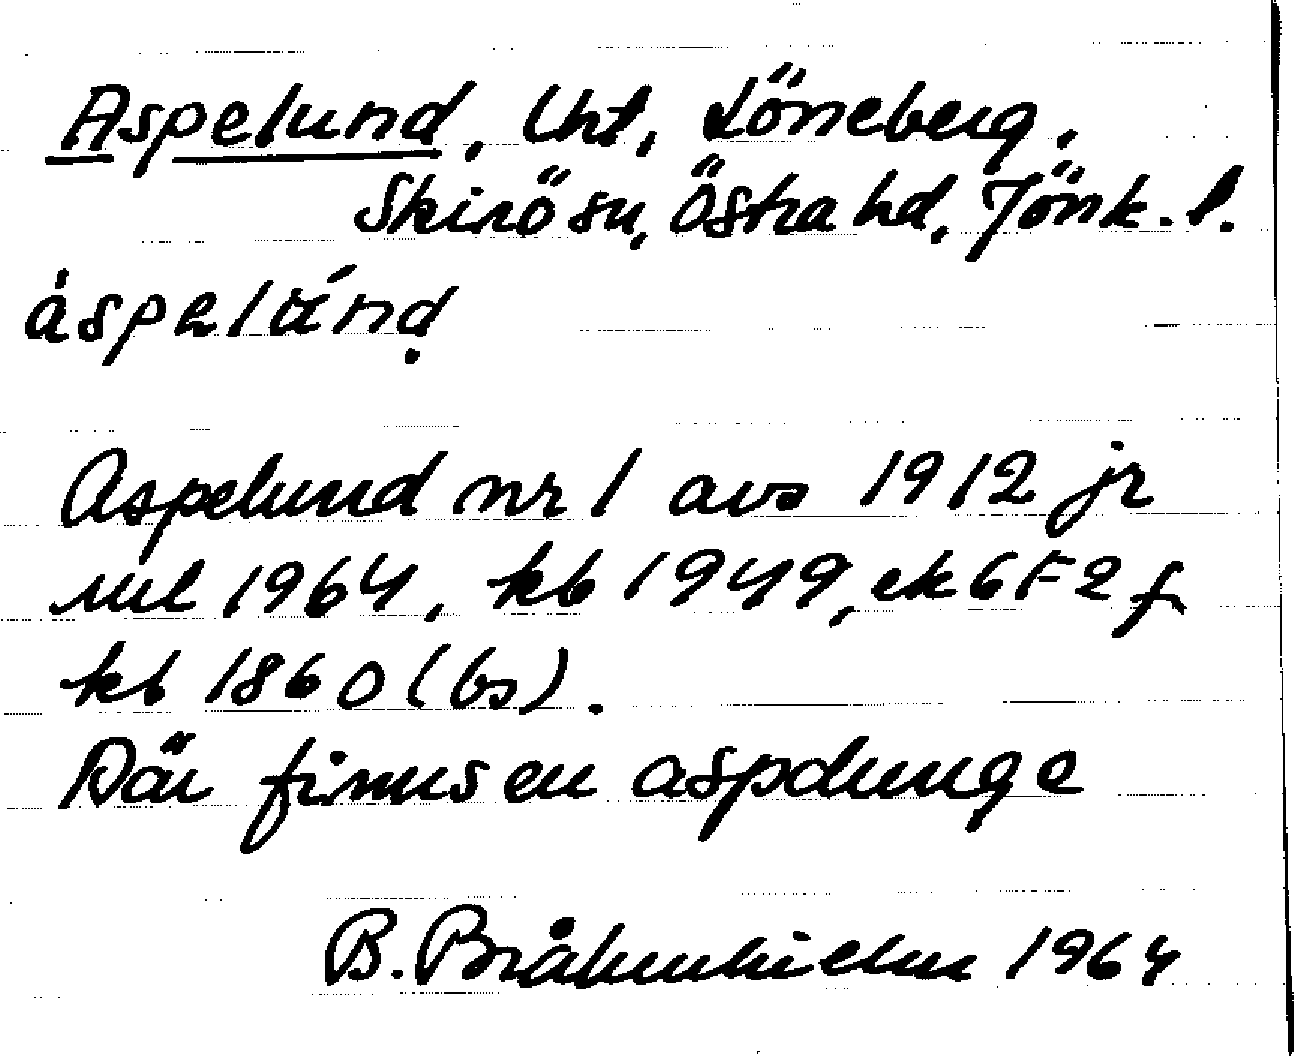 Aspelund, lht, Löneberg,
Skirö sn, Östra hd, Jönk. l.
áspelánḍ
Aspelund nr 1 avs 1912 jr
ml 1964, kb 1949, ek 6 F 2 f
kb 1860 (bs).
Där finns en aspdunge
B. Bråkenhielm 1964